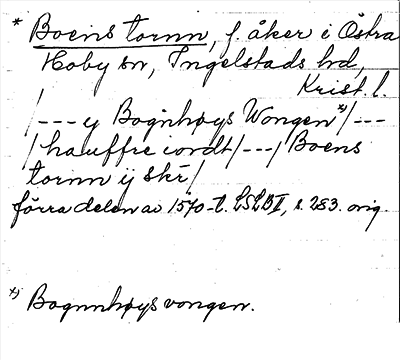 * Boens tornn, f. åker i Östra
Hoby sn, Ingelstads hd,
Krist. l.
/--- y Bognhøys Wongen *)/---
/hauffre iordt/---/Boens
tornn ij skr̄/
förra delen av 1570-t. LSLB II, s. 283. orig.
*) Bognnhøys vongen.